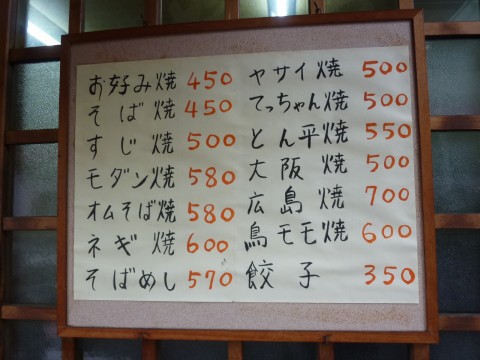 お好み焼 450
そば焼 450
すじ焼 500
モダン焼 580
オムそば焼 580
ネギ焼 600
そばめし 570
ヤサイ焼 500
てっちゃん焼 500
とん平焼 550
大阪焼 500
広島焼 700
鳥モモ焼 600
餃子 350